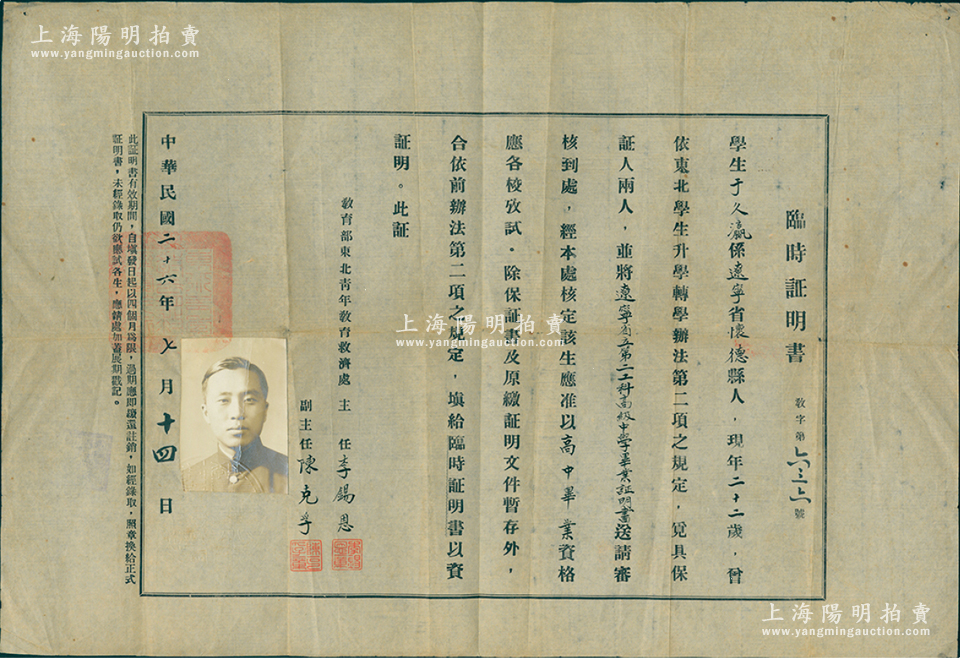 上海陽明拍賣
www.yangmingauction.com
臨時証明書
教字第六三六號
學生于久瀛係遼寧省懷德縣人，現年二十二歲，曾
依東北學生升學轉學辦法第二項之規定，覓具保
証人兩人，並將遼寧省立第二工科高級中學畢業証明書送請審
核到處，經本處核定該生應准以高中畢業資格
應各校攷試。除保証書及原繳証明文件暫存外，
合依前辦法第二項之規定，填給臨時証明書以資
証明。此証
教育部東北青年教育救濟處主任李錫恩
副主任陳克孚
中華民國二十六年七月十四日
此証明書有效期間，自填發日起以四個月為限，過期應即繳還註銷，如經錄取，照章換給正式
証明書，未經錄取仍欲應試各生，應請處加蓋展期戳記。
上海陽明拍賣
www.yangmingauction.com
上海陽明拍賣
www.yangmingauction.com